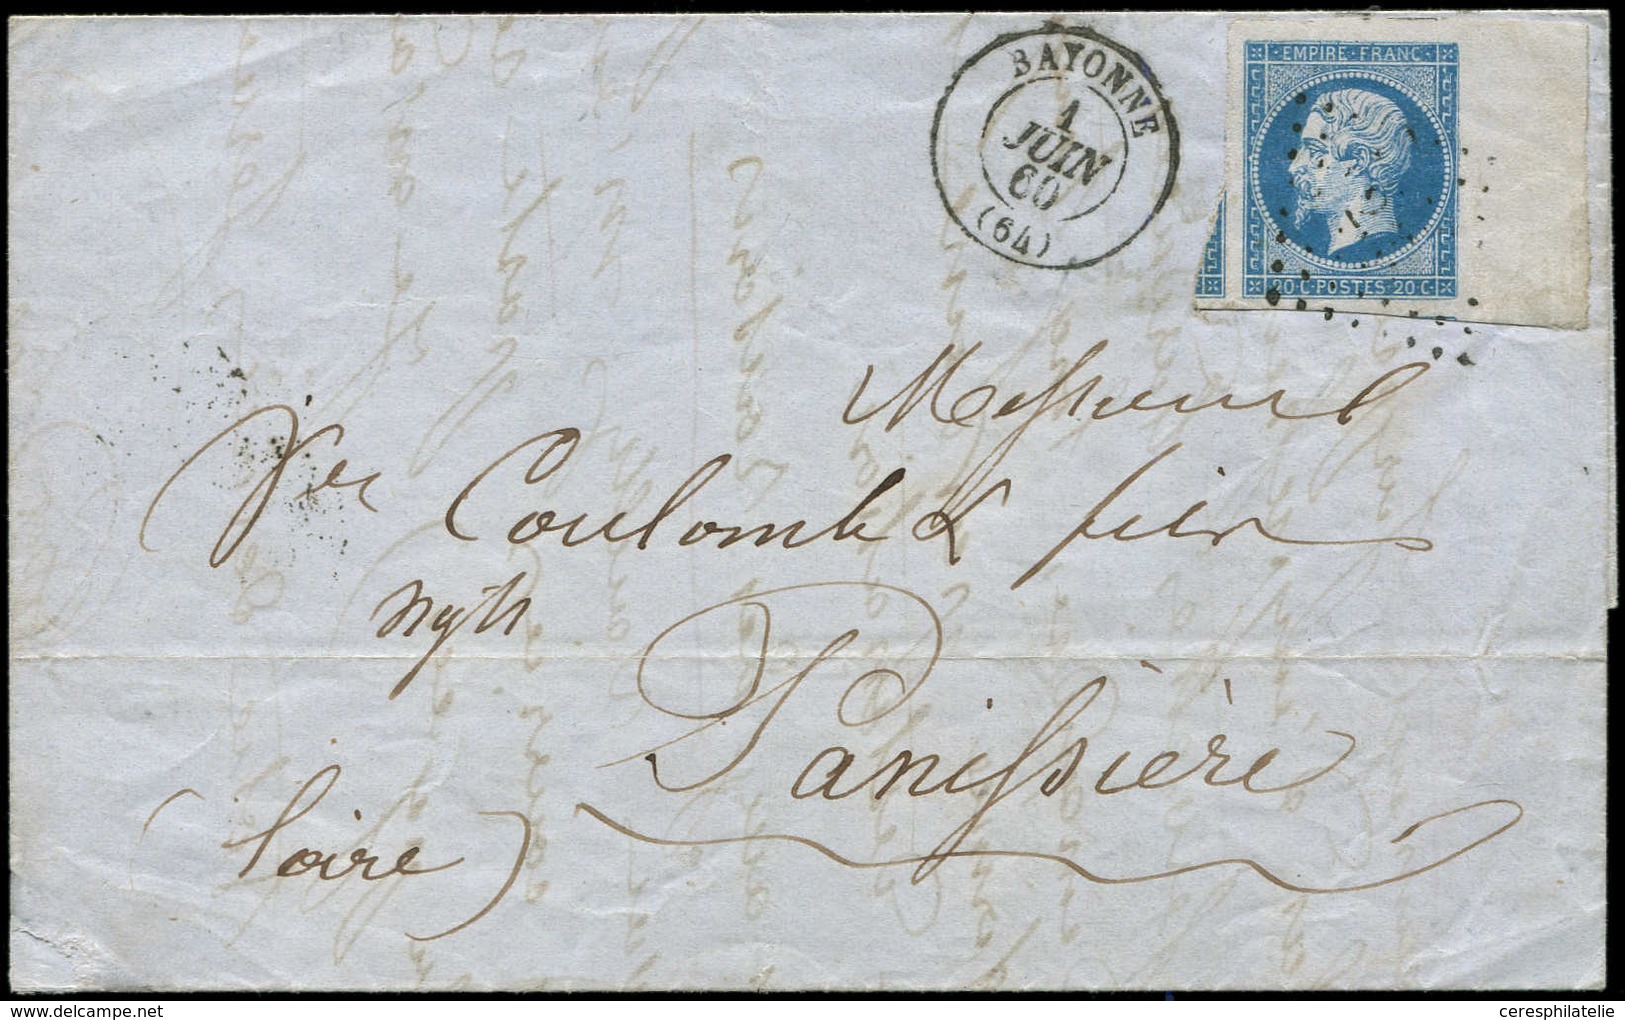 BAYONNE
1
JUIN
60
(64)
EMPIRE · FRANC ·
20 C · POSTES · 20 C ·
Messieurs
Coulomb & fils
Négts
Panissière
(Loire)
delcampe.net
ceresphilatelie